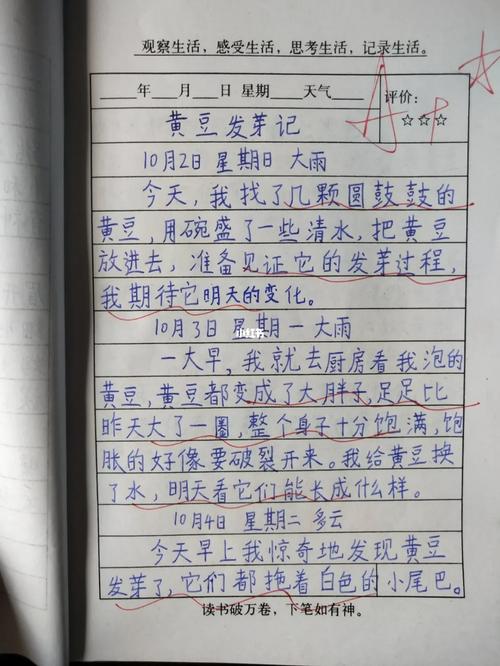 观察生活，感受生活，思考生活，记录生活。
____年____月____日 星期____天气____ 评价：
☆☆☆
黄豆发芽记
10月2日 星期日 大雨
今天，我找了几颗圆鼓鼓的
黄豆，用碗盛了一些清水，把黄豆
放进去，准备见证它的发芽过程，
我期待它明天的变化。
10月3日 星期一 大雨
小红书
一大早，我就去厨房看我泡的
黄豆，黄豆都变成了大胖子，足足比
昨天大了一圈，整个身子十分饱满，饱
胀的好像要破裂开来。我给黄豆换
了水，明天看它们能长成什么样。
10月4日 星期二 多云
今天早上我惊奇地发现黄豆
发芽了，它们都拖着白色的小尾巴。
读书破万卷，下笔如有神。